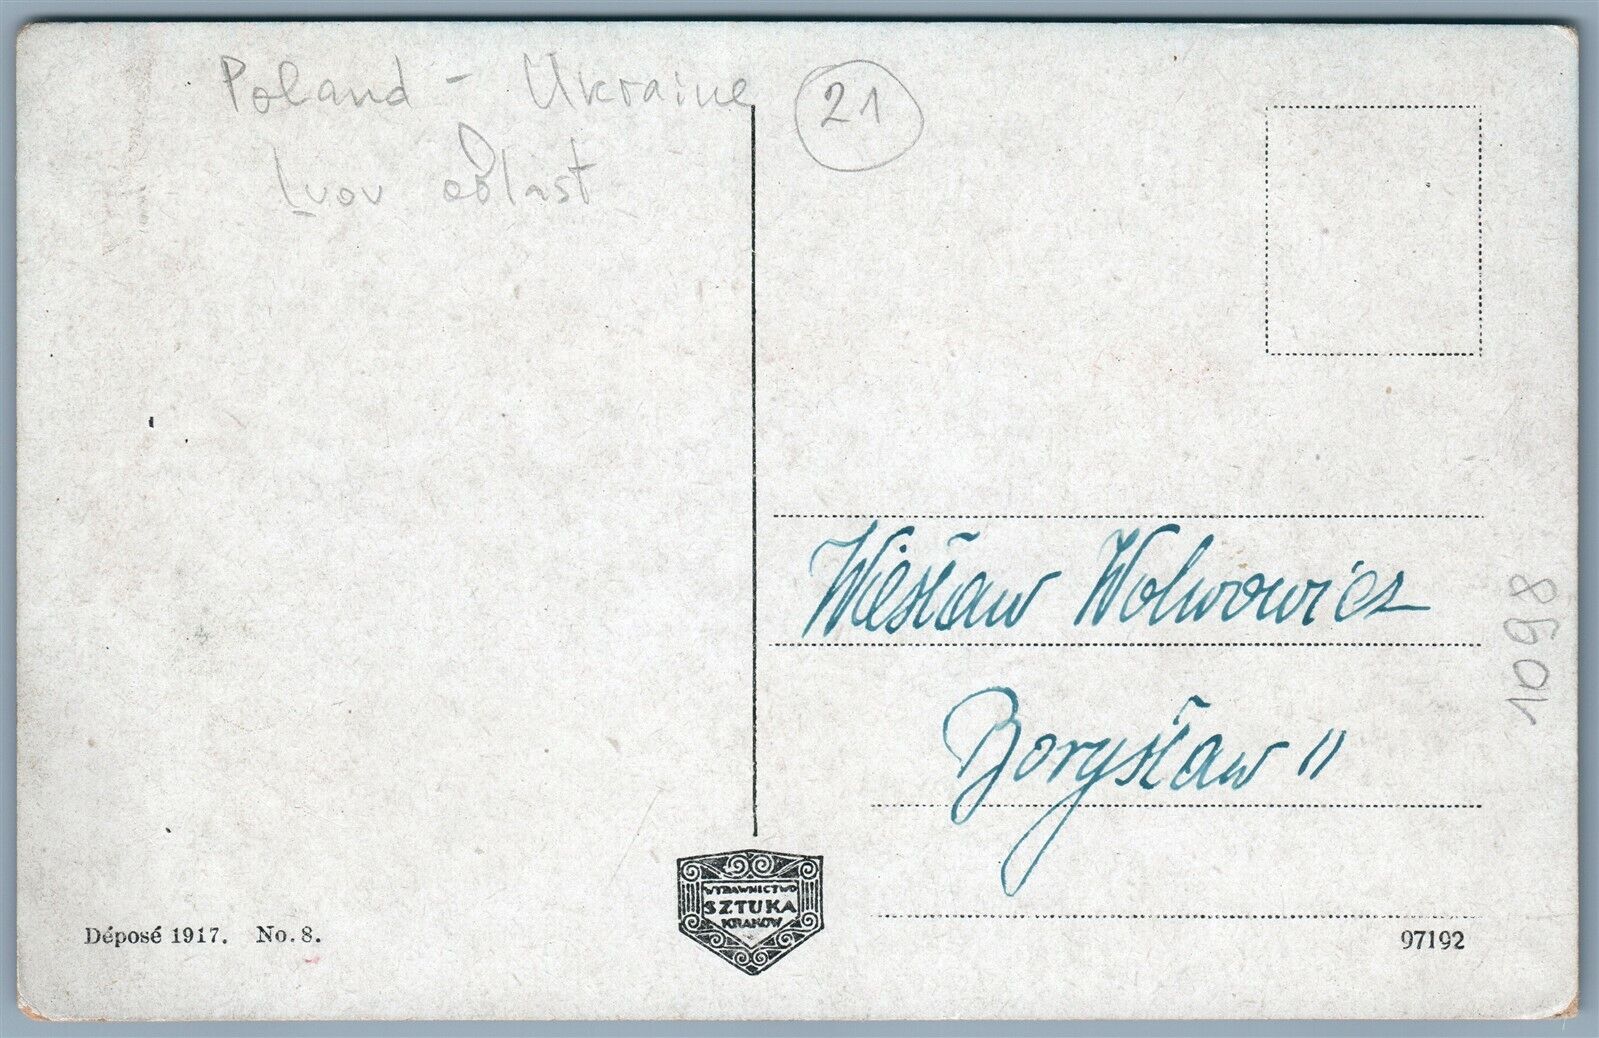 Poland - Ukraine
Lvov oblast
21
Wiesław Wolwowicz
Borysław II
1098
WYDAWNICTWO
SZTUKA
KRAKÓW
Déposé 1917. No. 8.
97192